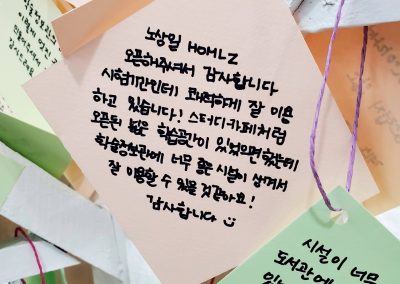 노상일 HOMLZ
오픈해주셔서 감사합니다
시험기간인데 쾌적하게 잘 이용
하고 있습니다! 스터디카페처럼
오픈된 넓은 학습공간이 있었으면 했는데
학술정보관에 너무 좋은 시설이 생겨서
잘 이용할 수 있을 것같아요!
감사합니다
시설이 너무
도서관에